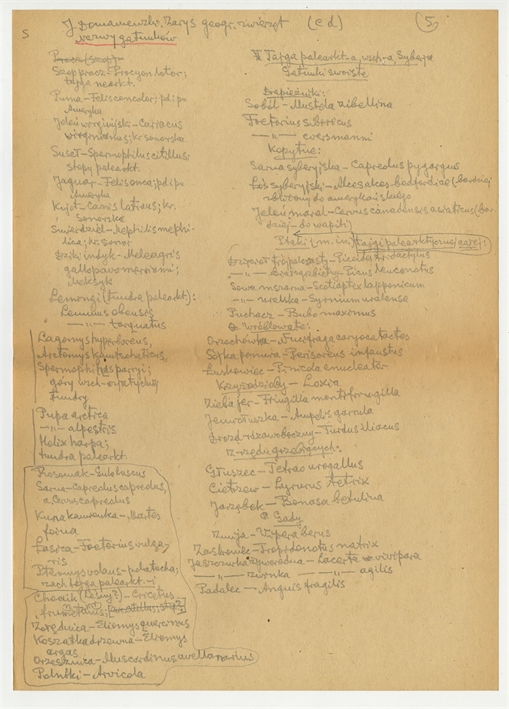 J. Domaniewski, Zarys geogr. zwierząt (c d) 5
nazwy gatunków
S
Szop pracz - Procyon lotor;
tajga neark.
Puma - Felis concolor; pd. i po
Ameryka
Jeleń wirginijsk. - Cariacus
virginianus; kr. sonorska
Suseł - Spermophilus citillus;
stepy palearkt.
Jaguar - Felis onca; pd. i po
Ameryka
Kujot - Canis latrans; kr.
sonorska
Śmierdziel - Mephitis mephi-
tica; kr. sonor
Dziki indyk - Meleagris
gallopavo merriami;
Meksyk
Lemingi (tundra palearkt.):
Lemmus obensis
-"- torquatus
Lagomys hyperboreus,
Arctomys kamtschaticus,
Spermophilus parryi;
góry wsch.-azjatyckiej
tundry
Pupa arctica
-"- alpestris
Helix harpa;
tundra paleark.
Rosomak - Gulo luscus
Sarna - Capreolus capreolus,
a. Cerv. capreolus
Kuna kamionka - Martes
foina
Łasica - Foetorius vulga-
ris
Ptenmys volans - polatucha;
zach. tajga paleark. -
Chomik - Cricetus
frumentarius;
Żołędnica - Eliomys quercinus
Koszatka drzewna - Eliomys
Orzesznica - Muscardinus avellanarius
Polniki - Arvicola
V Tajga palearkt-a, wsch-a, Syberja
Gatunki swoiste
Drapieżniki:
Soból - Mustela zibellina
Foetorius sibiricus
-"- eversmanni
Kopytne:
Sarna syberyjska - Capreolus pygargus
Łoś syberyjsk. - Alces alces bedfordiae (bardziej
zbliżony do amerykańskiego
Jeleń maral - Cervus canadensis asiaticus (ba
dziej - do wapiti)
Ptaki (m. in. tajgi palearktycznej całej:
Dzięcioł trójpalczasty - Picoides tridactylus
-"- białogrzbiety - Picus leuconotus
Sowa mszarna - Scotiaptex lapponicum
-"- uralska - Syrnium uralense
Puchacz - Bubo maximus
Q Wróblowate:
Orzechówka - Nucifraga caryocatactes
Sójka ponura - Perisoreus infaustus
Łuskowiec - Pinicola enucleator
Krzyżodzioby - Loxia
Zięba jer - Fringilla montifringilla
Jemiołuszka - Ampelis garrula
Drozd rdzawoboczny - Turdus iliacus
z rzędu grzebiących:
Głuszec - Tetrao urogallus
Cietrzew - Lyrurus tetrix
Jarząbek - Bonasa betulina
Q Gady
Żmija - Vipera berus
Zaskroniec - Tropidonotus natrix
Jaszczurka żyworodna - Lacerta vivipara
-"- zwinka -"- agilis
Padalec - Anguis fragilis